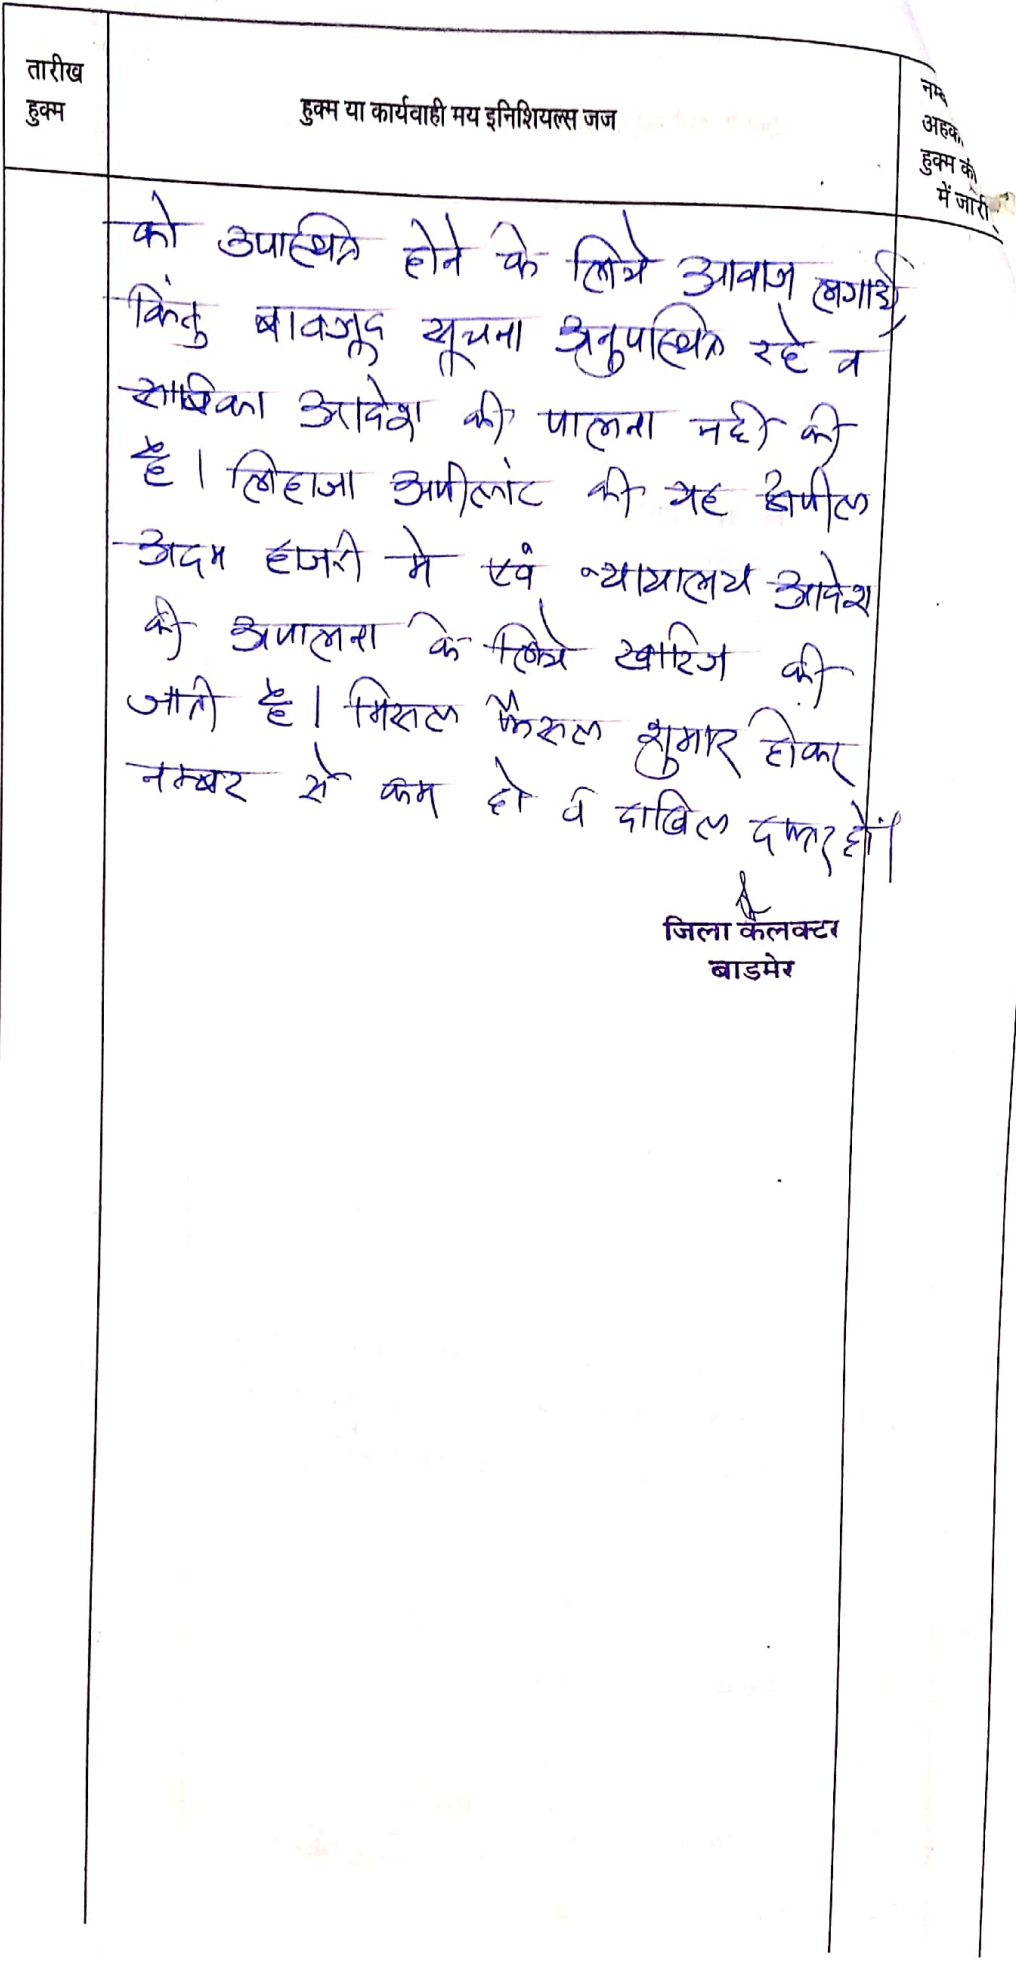 तारीख
हुक्म
हुक्म या कार्यवाही मय इनिशियल्स जज
नम्ब
अहक
हुक्म की
में जारी
को उपस्थित होने के लिये आवाज लगाई,
किंतु बावजूद सूचना अनुपस्थित रहे व
साबिका आदेश की पालना नही की
है। लिहाजा अपीलांट की यह अपील
अदम हाजरी मे एवं न्यायालय आदेश
की अपालना के लिये खारिज की
जाती है। मिसल फैसल शुमार होकर
नम्बर से कम हो व दाखिल दफ्तर हों।
जिला कलक्टर
बाडमेर